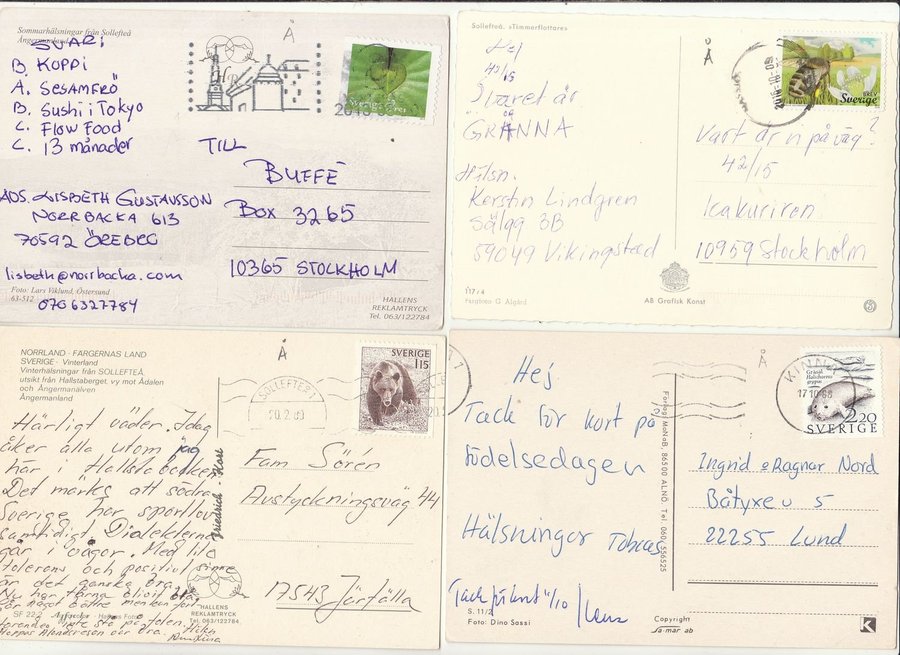 Sommarhälsningar från Sollefteå
Ångermanland
SVAR:
B. KOPPI
A. SESAMFRÖ
B. SUSHI i TOKYO
C. FLOW FOOD
C. 13 månader
Å
Sverige
TILL
BUFFÉ
BOX 3265
10365 STOCKHOLM
ADS. LISBETH GUSTAVSSON
NORRBACKA 613
70592 ÖREBRO
lisbeth@norrbacka.com
Foto: Lars Viklund, Östersund
63-512
070 6327784
HALLENS
REKLAMTRYCK
Tel. 063/122784
Sollefteå. »Timmerflottare»
Hej
42/15
Svaret är
GRÄNNA
Hilsn.
Kerstin Lindgren
Sälgg 3B
59049 Vikingstad
117/4
Färgfoto G Algård
Å
BREV
Sverige
Vart är vi på väg?
42/15
Icakuriren
10959 Stockholm
AB Grafisk Konst
NORRLAND - FÄRGERNAS LAND
SVERIGE - Vinterland
Vinterhälsningar från SOLLEFTEÅ,
utsikt från Hallstaberget, vy mot Ådalen
och Ångermanälven
Ångermanland
Å
SOLLEFTEÅ 1
20.2.80
SVERIGE
115
Härligt väder. Idag
åker alla utom jag
här i Hallstabacken
Det märks att södra
Sverige har sportlov
samtidigt. Dialekterna
går i vågor. Med lite
tolerans och positivt sinne
är det ganska bra.
Nu har tårna blivit
något bättre men
inte stå på
Hoppas bra.
Friedrich - Host
Fam Sörén
Avstyckningsväg 44
17543 Järfälla
SF 222 Agfacolor
HALLENS
REKLAMTRYCK
Tel. 063/122784
Hej
Tack för kort på
födelsedagen
Hälsningar Tobias
S. 11/2
Foto: Dino Sassi
Förlag MoNaB, 86500 ALNÖ. Tel. 060, 556525
Å
KINNA
17.10.88
Gråsäl
Halichoerus
grypus
2.20
SVERIGE
Ingrid o Ragnar Nord
Båtyxev 5
22255 Lund
Copyright
sa-mar ab
K